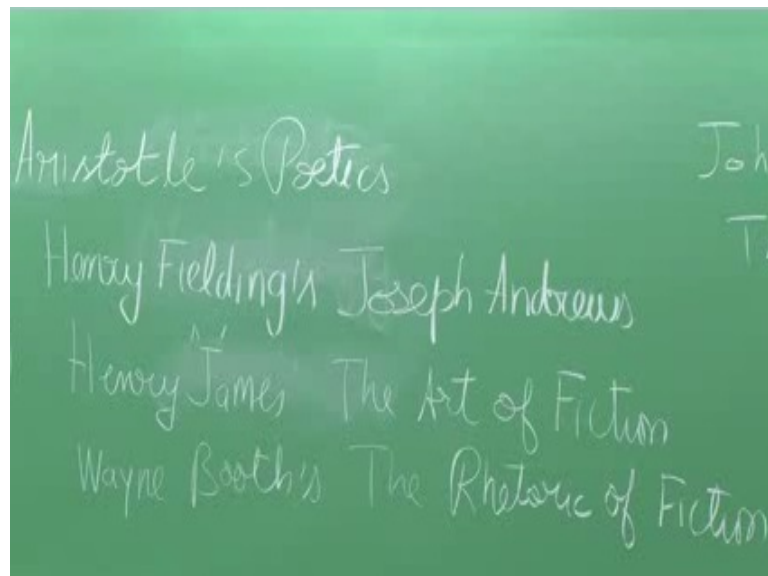 Aristotle's Poetics
Henry Fielding's Joseph Andrews
Henry James' The Art of Fiction
Wayne Booth's The Rhetoric of Fiction